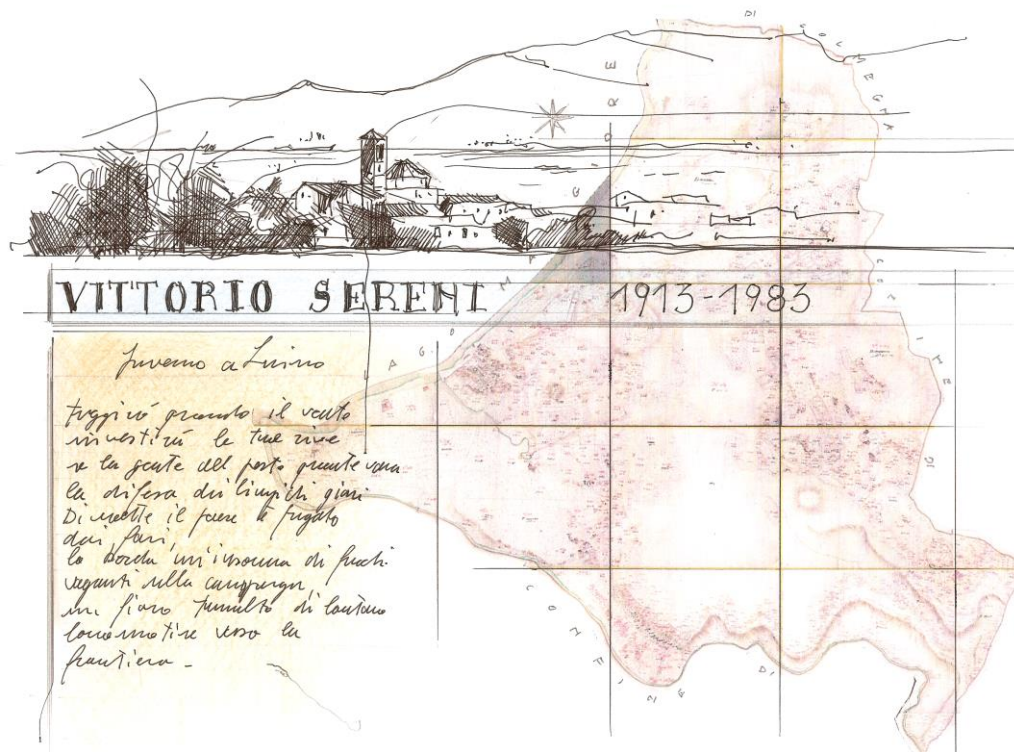 DI COLMEGNA
VITTORIO SERENI 1913-1983
Inverno a Luino
Fuggirò quando il vento
investirà le tue rive
sa la gente del porto quant'è vana
la difesa dei limpidi giorni
Di notte il paese è frugato
dai fari,
lo borda un'insonnia di fuochi
vaganti nella campagna,
un fioco tumulto di lontane
locomotive verso la
frontiera.
CONFINE DI